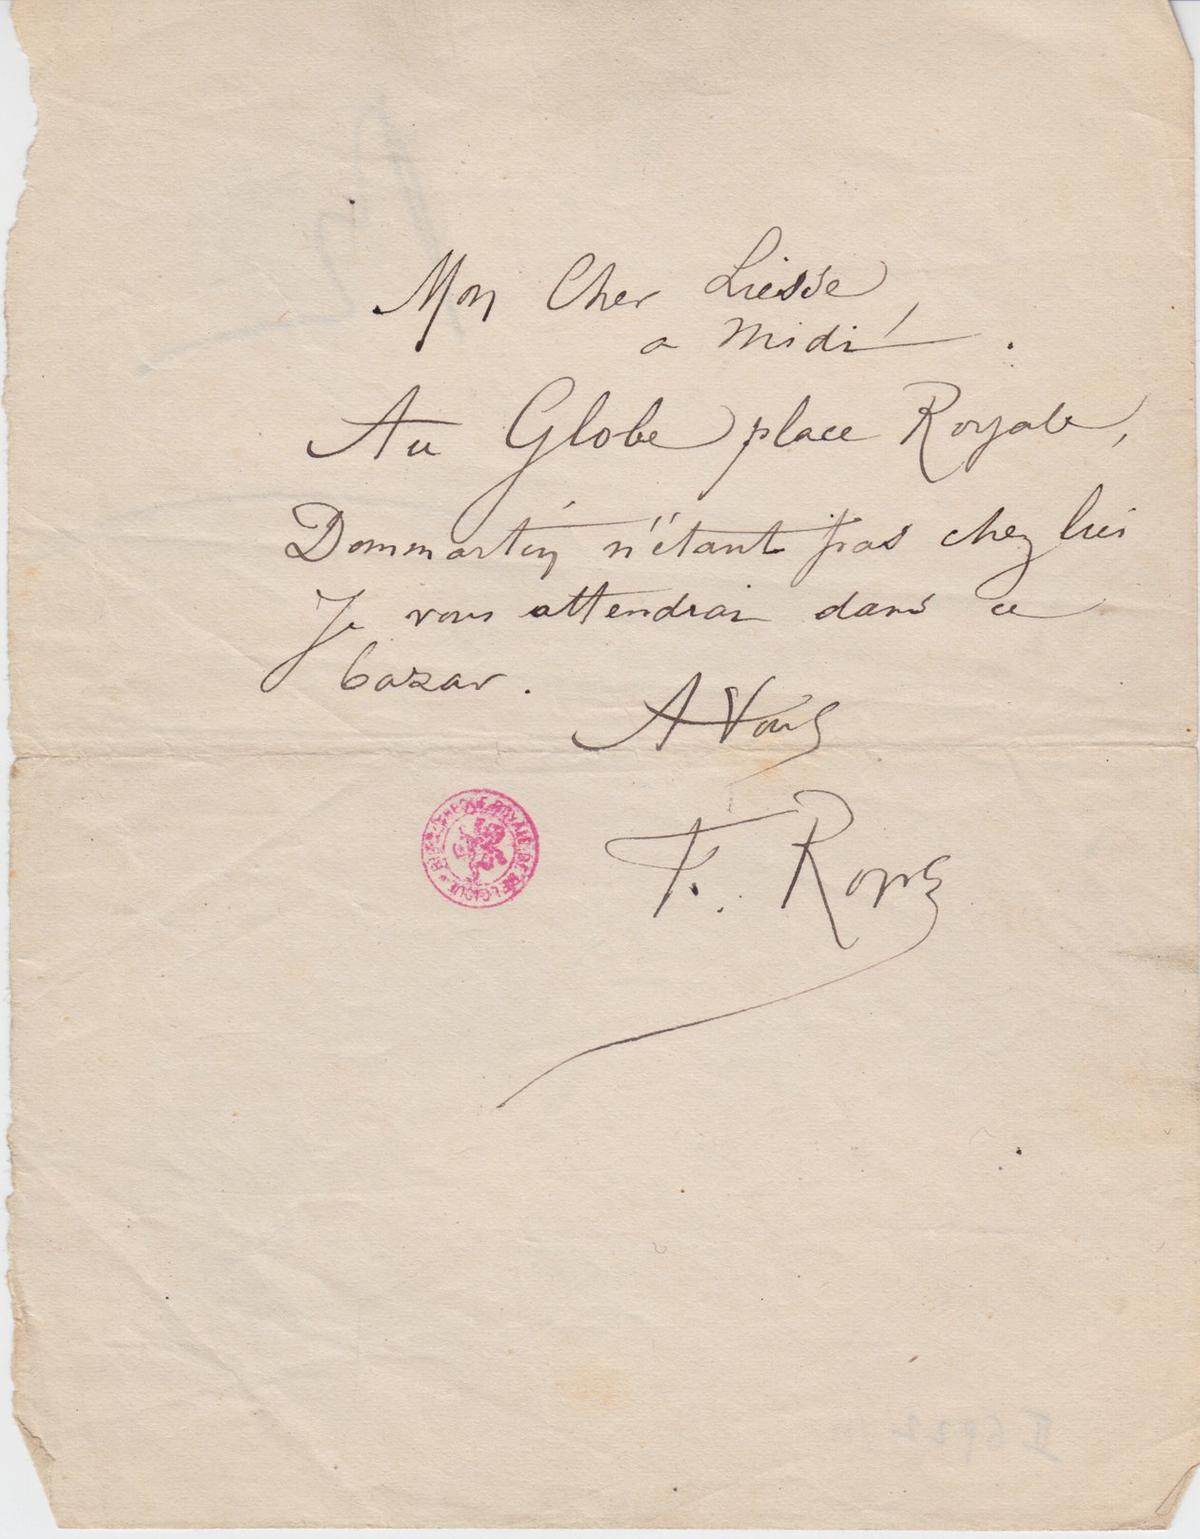 Mon Cher Liesse,
a midi.
Au Globe place Royale,
Dommartin n'étant pas chez lui
Je vous attendrai dans ce
bazar.
A Vous
F. Rops
BIBLIOTHÈQUE ROYALE DE BELGIQUE